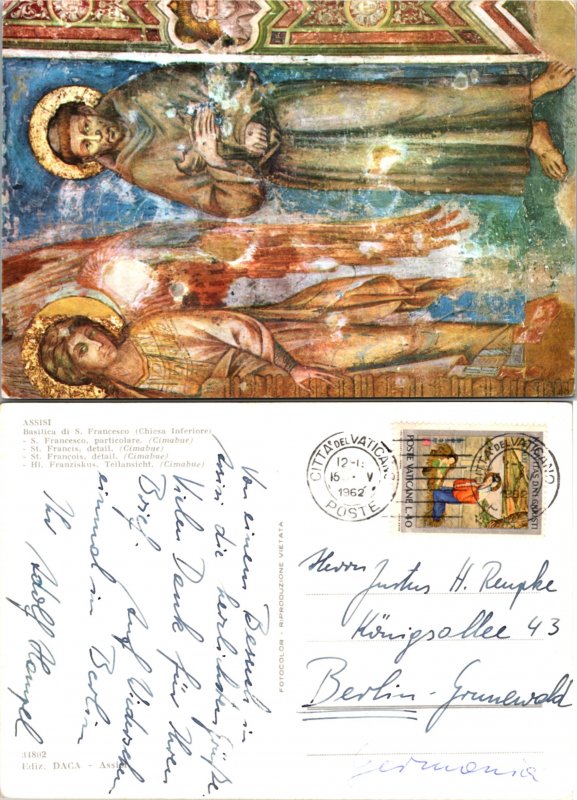 ASSISI
Basilica di S. Francesco (Chiesa Inferiore)
- S. Francesco, particolare. (Cimabue)
- St. Francis, detail. (Cimabue)
- St. François, détail. (Cimabue)
- Hl. Franziskus, Teilansicht. (Cimabue)
Von einem Besuch in
Assisi die herzlichsten Grüße.
Vielen Dank für Ihren
Brief. Auf Wiedersehen
einmal in Berlin
Ihr Adolf Hampel
31802
Ediz. DACA - Assisi
FOTOCOLOR - RIPRODUZIONE VIETATA
CITTA' DEL VATICANO
12-1
15 V
1962
POSTE
CITTA' DEL VATICANO
POSTE VATICANE L.40
Herrn Justus H. Rempke
Königsallee 43
Berlin-Grunewald
Germania